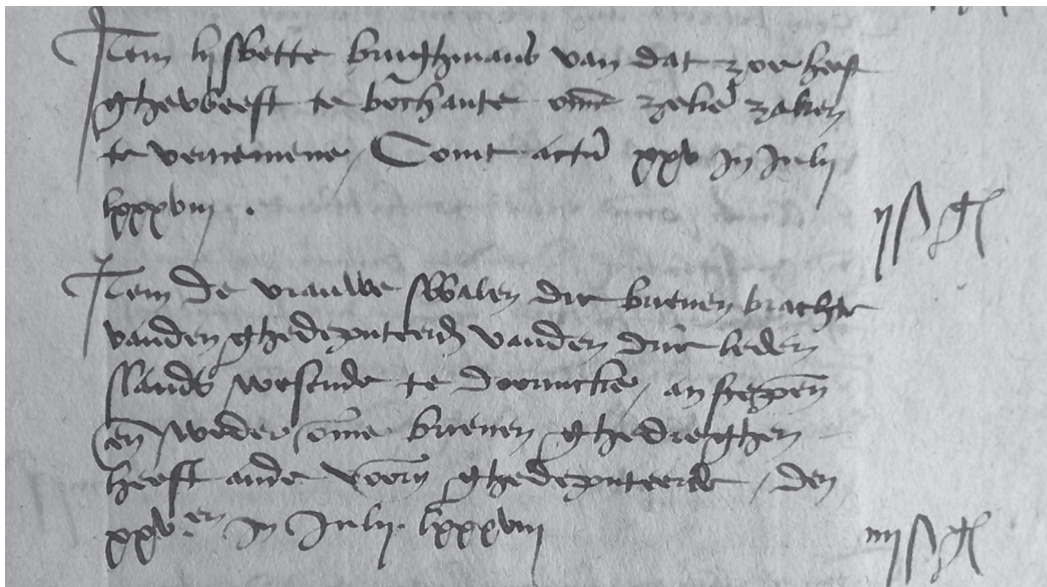 Item lysbette brughmans van dat zoe heeft
gheweest te bochaute omme zekere zaken
te vernemene / Comt actum xxv in Julii
lxxxviii . ii s gr
Item de vrauwe swalen die brieven brachte
vanden ghedeputeerden vanden drie leden
slands wesende te doornicke / an scepen
en weder omme brieven ghedreghen
heeft ande voors ghedeputeerde / den
xxv.en in Julii lxxxviii iiii s gr